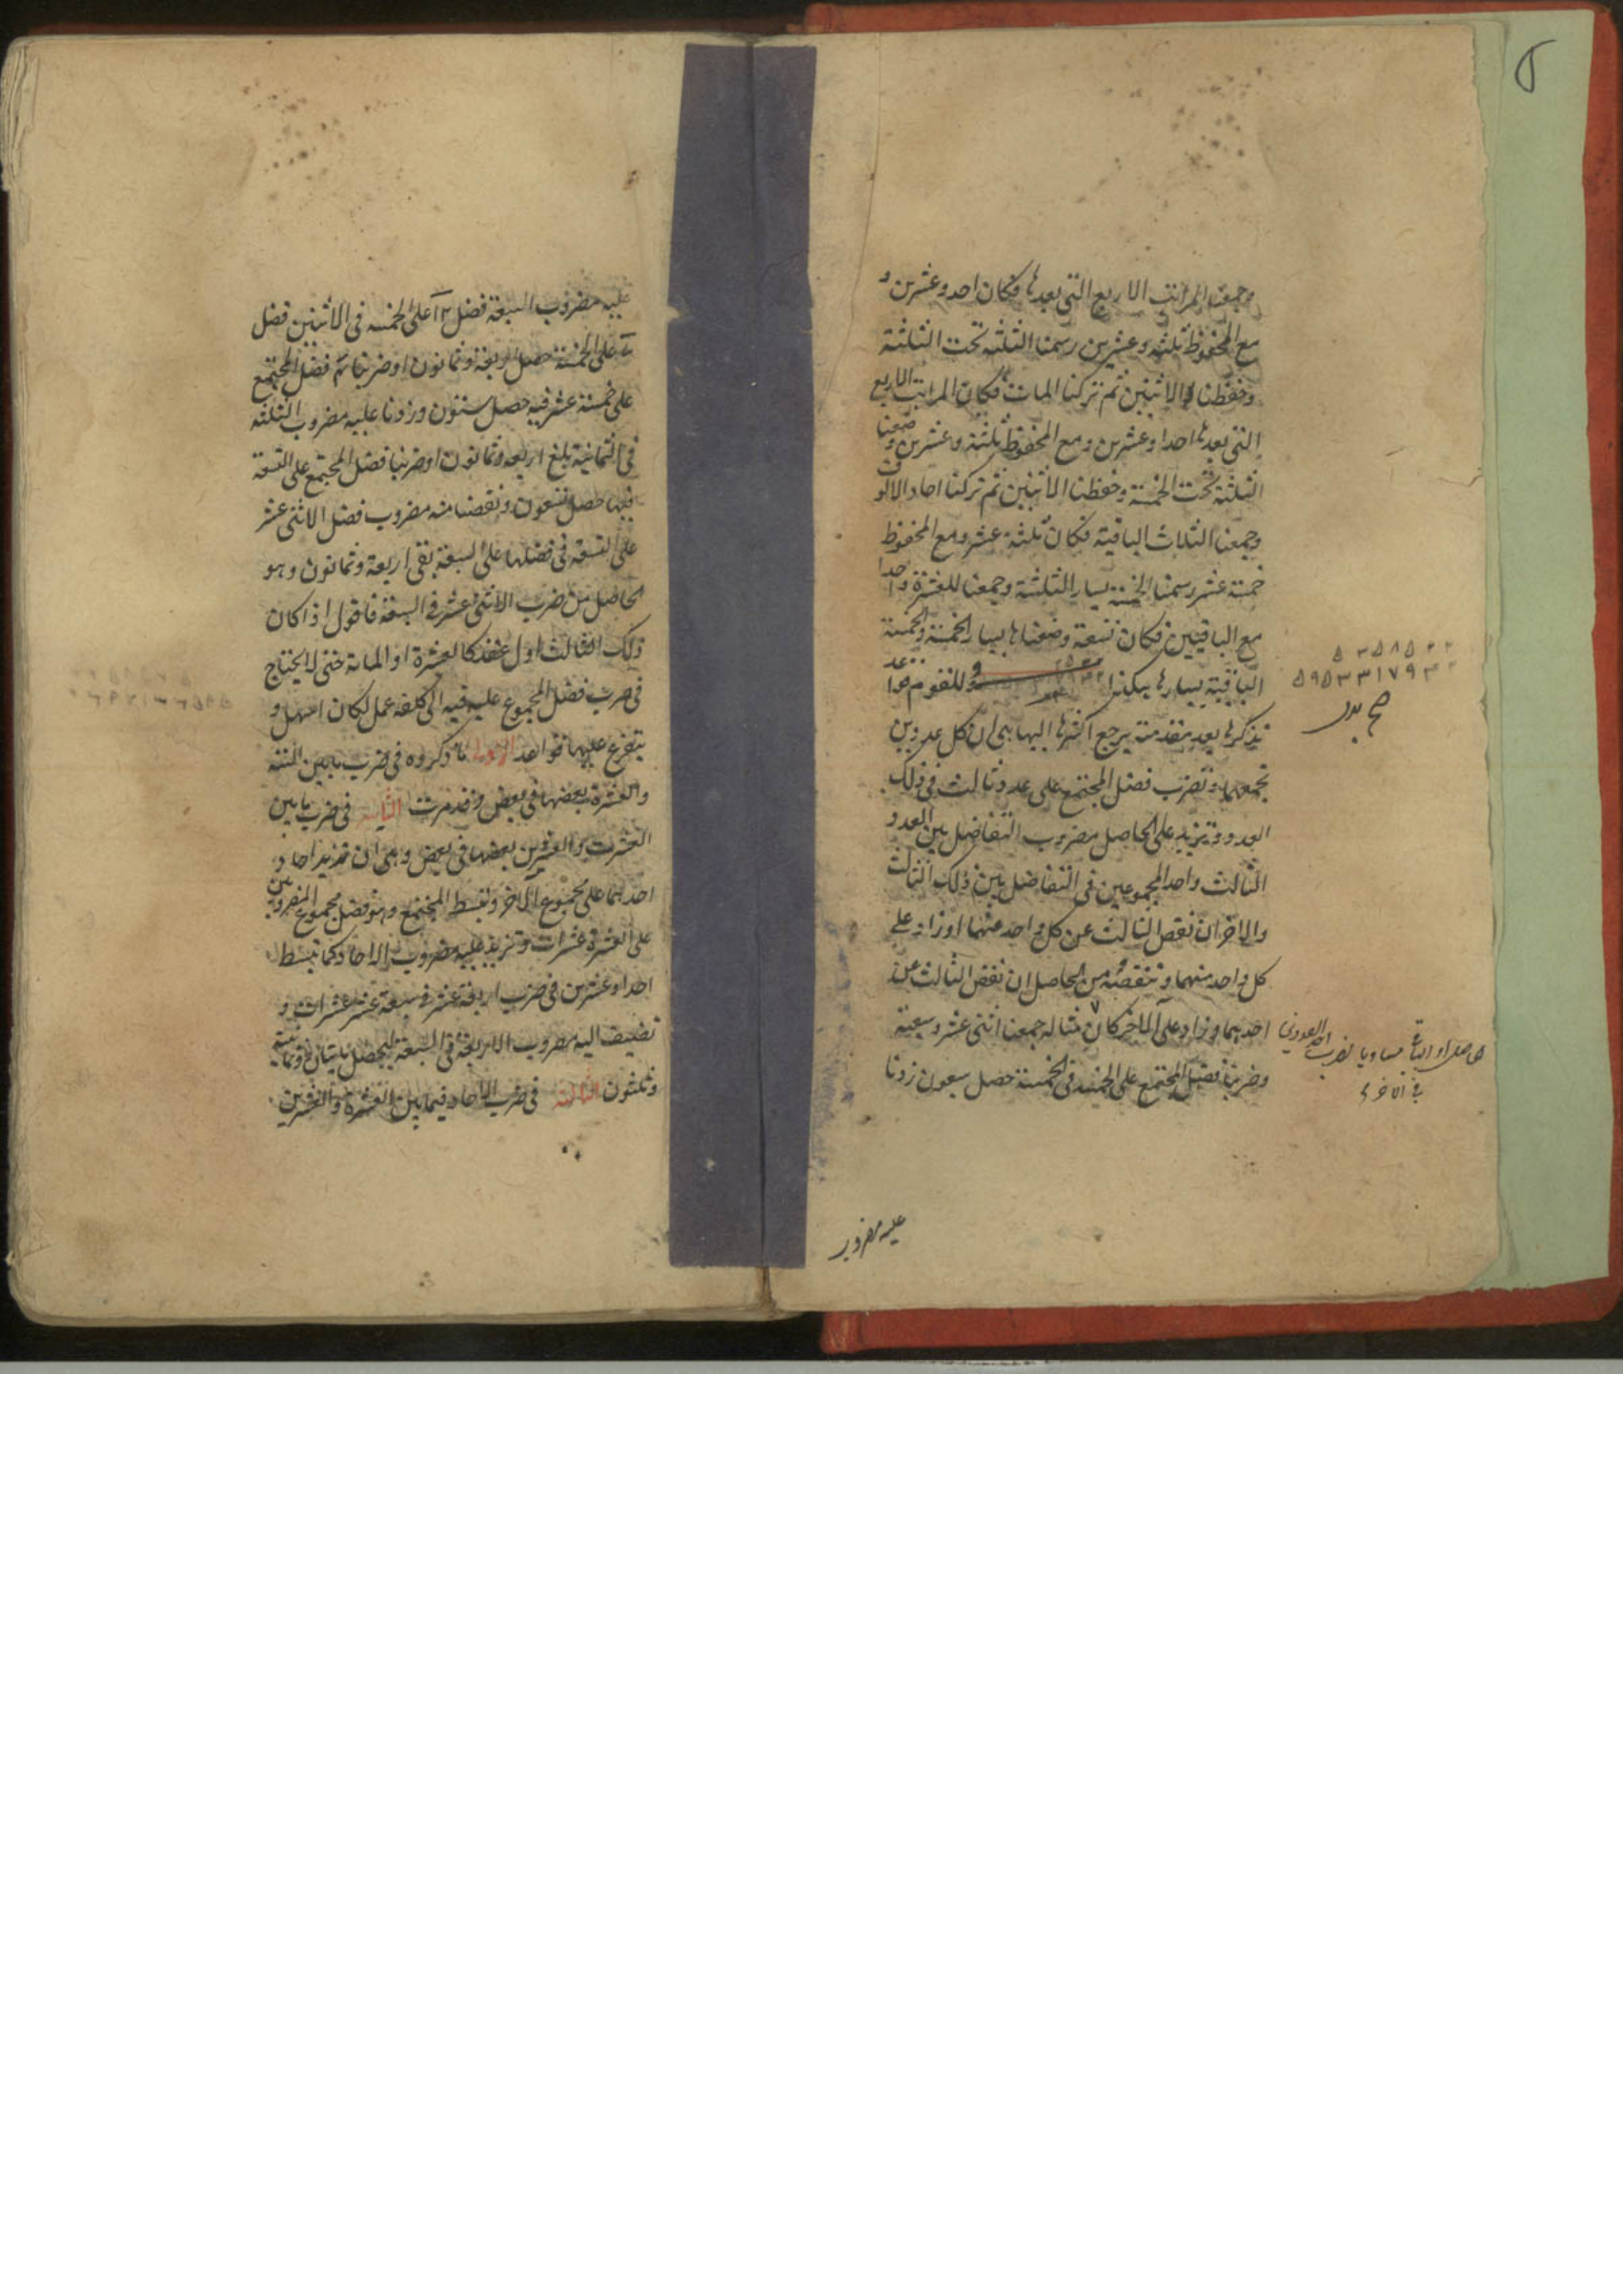 وجمعنا المراتب الاربع التى بعدها فكان احد وعشرين و
مع المحفوظ ثلثة وعشرين رسمنا الثلثة تحت الثلثة
وحفظنا الاثنين ثم تركنا المات فكان المراتب الاربع
التى بعدها احدا وعشرين ومع المحفوظ ثلثة وعشرين وضعنا
الثلثة تحت الخمسة وحفظنا الاثنين ثم تركنا احاد الالوف
وجمعنا الثلاث الباقية فكان ثلثة عشر ومع المحفوظ
خمسة عشر رسمنا الخمسة يسار الثلثة وجمعنا للعشرة واحدا
مع الباقيين فكان تسعة وضعناها يسار الخمسة والخمسة
الباقية يسارها هكذا وللقوم قواعد
نذكرها بعد مقدمة يرجع اكثرها اليها هى ان كل عددين
تجمعهما وتضرب فضل المجتمع على عدد ثالث فى ذلك
العدد وتزيد على الحاصل مضروب التفاضل بين العدد
الثالث واحد المجموعين فى التفاضل بين ذلك الثالث
والاخر ان نقص الثالث عن كل واحد منهما او زاد على
كل واحد منهما وتنقصه من الحاصل ان نقص الثالث عن
احدهما وزاد على الاخر كان مثاله جمعنا اثنى عشر وسبعة
وضربنا فضل المجتمع على الخمسة فى الخمسة حصل سبعون زدنا
۵۹۵۳۳۱۷۹۳۲
صح بدل
الحاصل او الباقى مساويا لضرب احد العددين
فى الاخر
عليه مضروب
عليه مضروب السبعة فضل ١٢ على الخمسة فى الاثنين فضل
٧ على الخمسة حصل اربعة وثمانون او ضربنا ثم فضل المجتمع
على خمسة عشر فيه حصل ستون وزدنا عليه مضروب الثلثة
فى الثمانية بلغ اربعة وثمانون او ضربنا فضل المجتمع على التسعة
فيها حصل تسعون ونقصنا منه مضروب فضل الاثنى عشر
على التسعة فى فضلها على السبعة بقى اربعة وثمانون وهو
الحاصل من ضرب الاثنى عشر فى السبعة فاقول اذا كان
ذلك الثالث اول عقد كالعشرة او المائة حتى لا يحتاج
فى ضرب فضل المجموع عليه فيه الى كلفة عمل لكان اسهل و
يتفرع عليها قواعد الاولى ما ذكروه فى ضرب ما بين الخمسة
والعشرة بعضها فى بعض وقد مرت الثانية فى ضرب ما بين
العشرة والعشرين بعضها فى بعض وهى ان تزيد احاد
احدهما على مجموع الاخر وتبسط المجتمع وهو فضل مجموع المضروبين
على العشرة عشرات وتزيد عليه مضروب الاحاد كما تبسط
احدا وعشرين فى ضرب اربعة عشر فى سبعة عشر عشرات و
تضيف اليه مضروب الاربعة فى السبعة ليحصل مائتان وثمانية
وثلثون الثالثة فى ضرب الاحاد فيما بين العشرة والعشرين